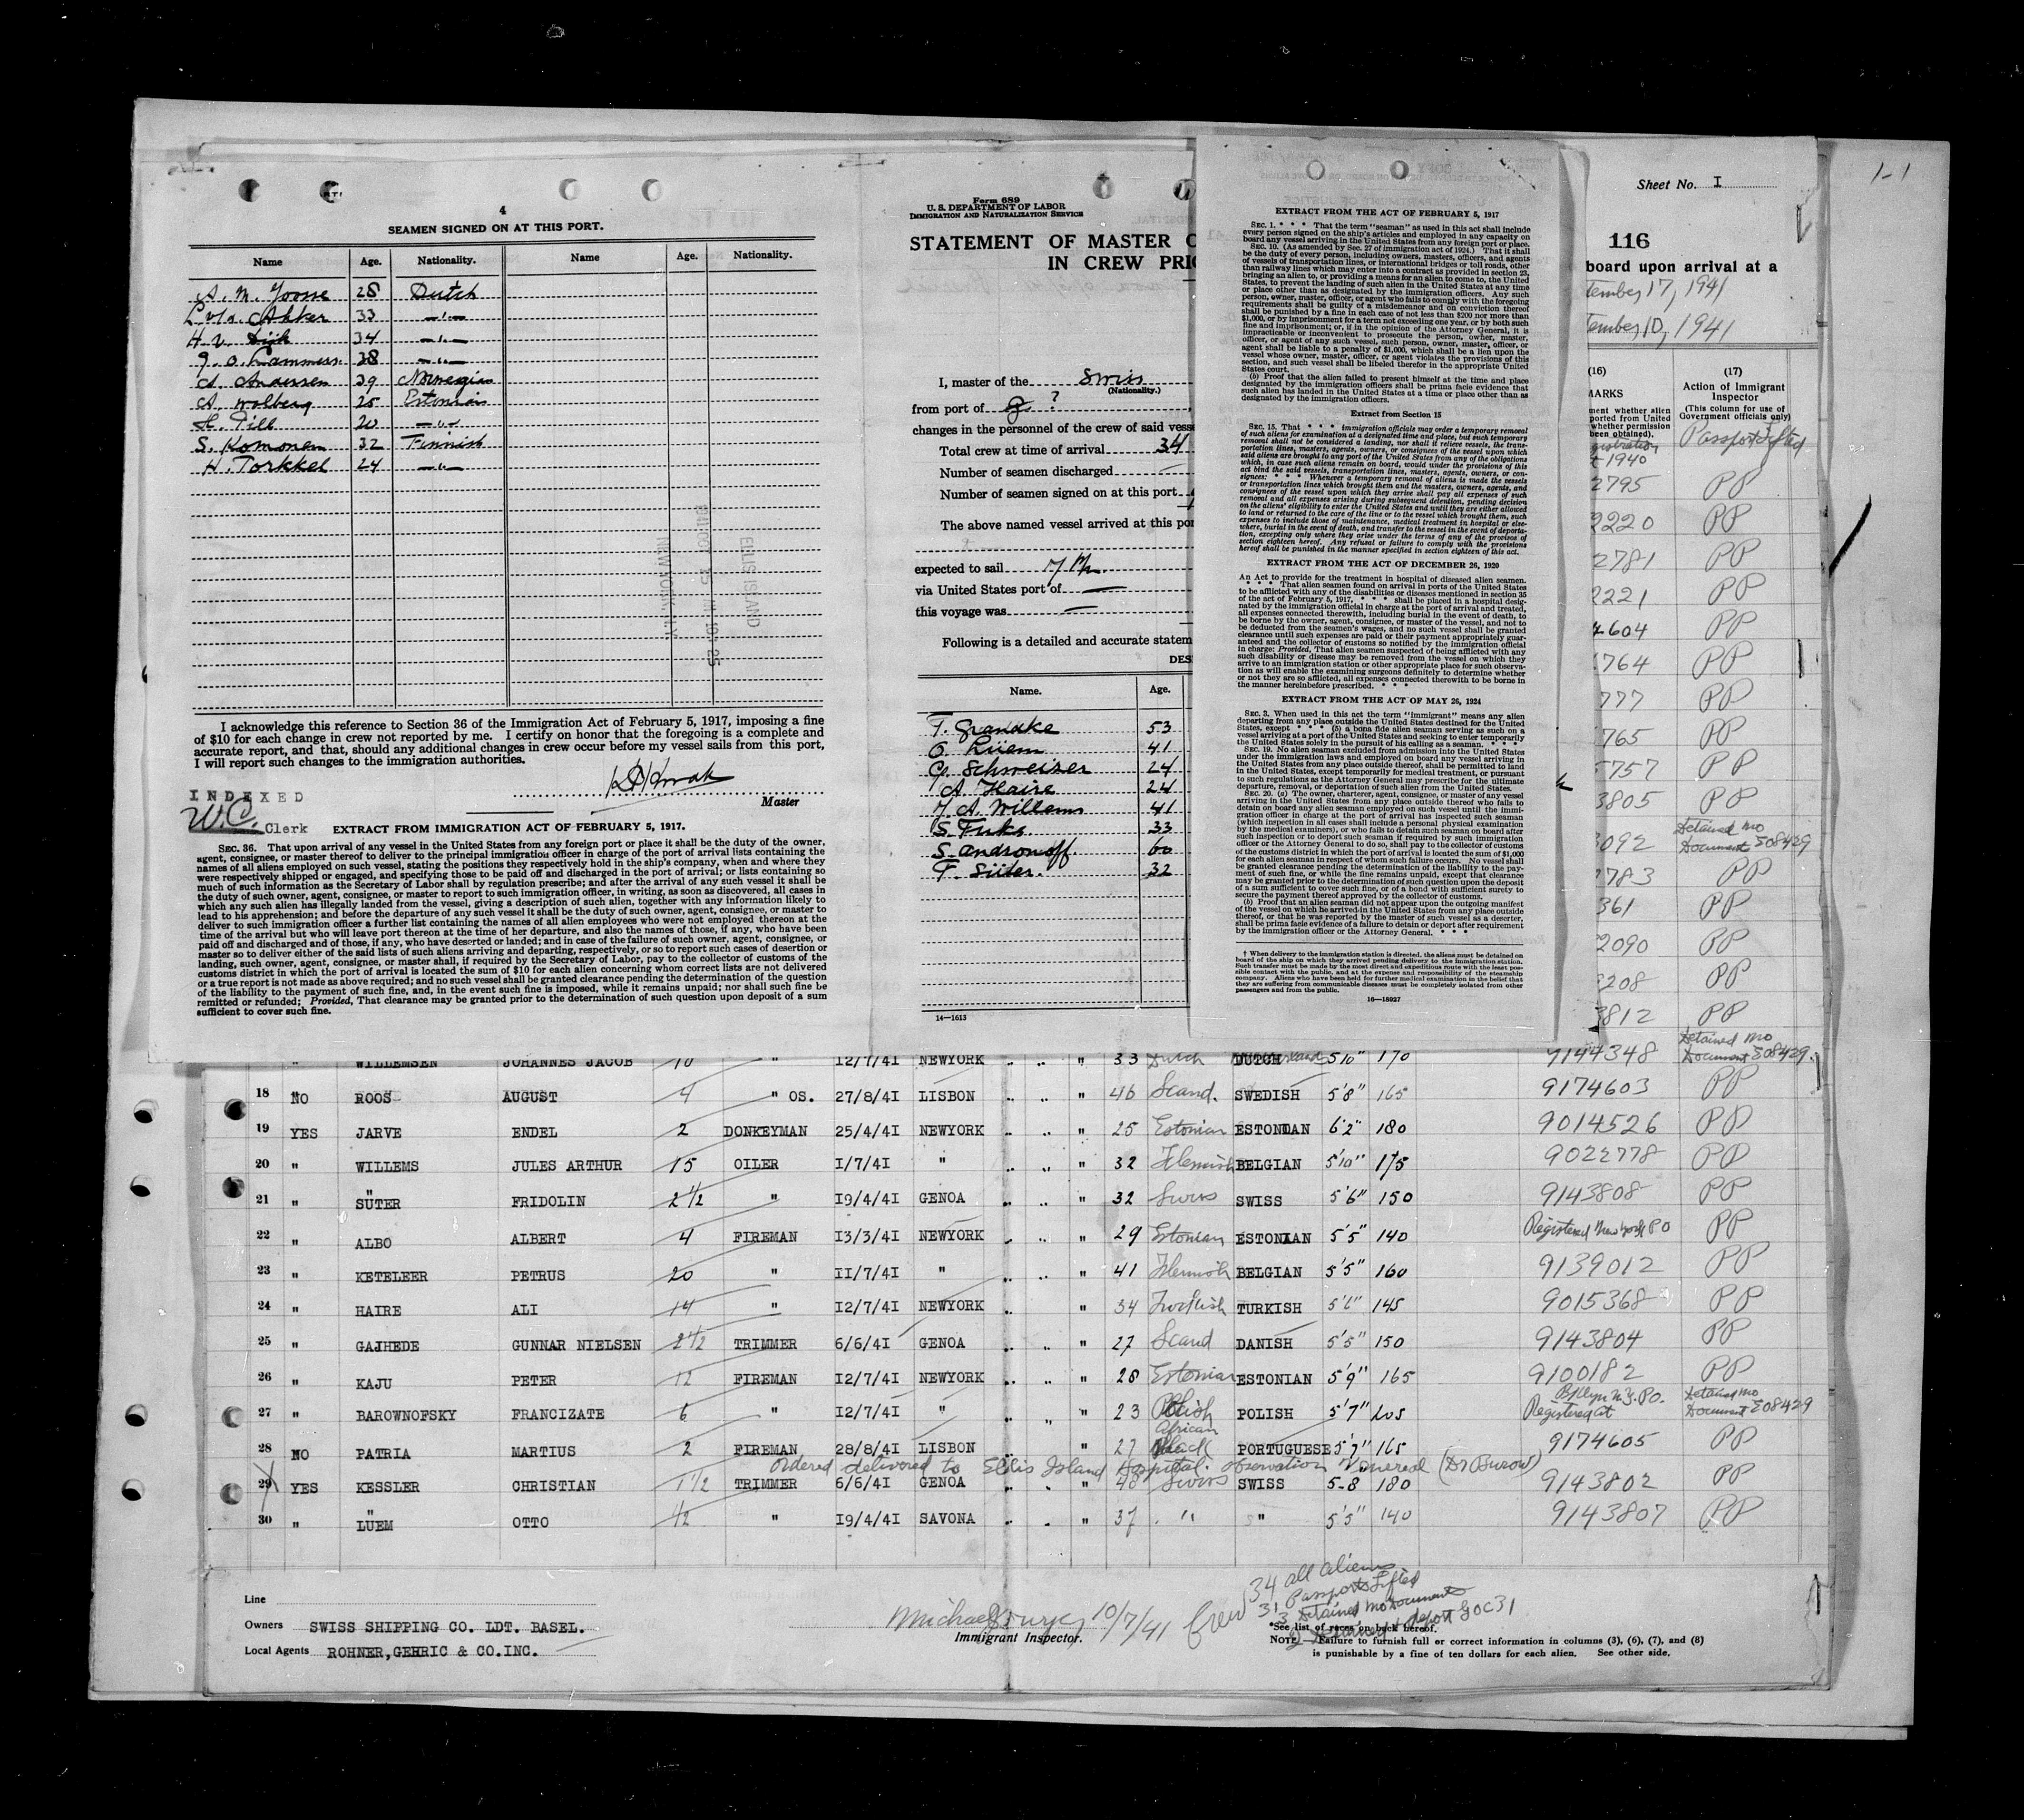 4
SEAMEN SIGNED ON AT THIS PORT.
Name Age. Nationality. Name Age. Nationality.
A. M. Joosse 28 Dutch
L. v/d. Akker 33 -"-
H. v. Dijk 34 -"-
J. O. Lammers 38 -"-
A. Andersen 39 Norwegian
A. Wolberg 25 Estonian
H. Pill 20 -"-
S. Komonen 32 Finnish
H. Torkkel 24 -"-
ELLIS ISLAND
NEW YORK, N.Y.
I acknowledge this reference to Section 36 of the Immigration Act of February 5, 1917, imposing a fine
of $10 for each change in crew not reported by me. I certify on honor that the foregoing is a complete and
accurate report, and that, should any additional changes in crew occur before my vessel sails from this port,
I will report such changes to the immigration authorities.
Master
INDEXED
W.C. Clerk
EXTRACT FROM IMMIGRATION ACT OF FEBRUARY 5, 1917.
SEC. 36. That upon arrival of any vessel in the United States from any foreign port or place it shall be the duty of the owner,
agent, consignee, or master thereof to deliver to the principal immigration officer in charge of the port of arrival lists containing the
names of all aliens employed on such vessel, stating the positions they respectively hold in the ship's company, when and where they
were respectively shipped or engaged, and specifying those to be paid off and discharged in the port of arrival; or lists containing so
much of such information as the Secretary of Labor shall by regulation prescribe; and after the arrival of any such vessel it shall be
the duty of such owner, agent, consignee, or master to report to such immigration officer, in writing, as soon as discovered, all cases in
which any such alien has illegally landed from the vessel, giving a description of such alien, together with any information likely to
lead to his apprehension; and before the departure of any such vessel it shall be the duty of such owner, agent, consignee, or master to
deliver to such immigration officer a further list containing the names of all alien employees who were not employed thereon at the
time of the arrival but who will leave port thereon at the time of her departure, and also the names of those, if any, who have been
paid off and discharged and of those, if any, who have deserted or landed; and in case of the failure of such owner, agent, consignee, or
master so to deliver either of the said lists of such aliens arriving and departing, respectively, or so to report such cases of desertion or
landing, such owner, agent, consignee, or master shall, if required by the Secretary of Labor, pay to the collector of customs of the
customs district in which the port of arrival is located the sum of $10 for each alien concerning whom correct lists are not delivered
or a true report is not made as above required; and no such vessel shall be granted clearance pending the determination of the question
of the liability to the payment of such fine, and, in the event such fine is imposed, while it remains unpaid; nor shall such fine be
remitted or refunded; Provided, That clearance may be granted prior to the determination of such question upon deposit of a sum
sufficient to cover such fine.
Form 689
U. S. DEPARTMENT OF LABOR
IMMIGRATION AND NATURALIZATION SERVICE
STATEMENT OF MASTER O
IN CREW PRIO
I, master of the Swiss
(Nationality.)
from port of ?
changes in the personnel of the crew of said vesse
Total crew at time of arrival 34
Number of seamen discharged
Number of seamen signed on at this port
The above named vessel arrived at this por
expected to sail
via United States port of
this voyage was
Following is a detailed and accurate statem
DES
Name. Age.
T. Grandke 53
O. Luem 41
G. Schweizer 24
A. Haire 24
J. A. Willems 41
S. Fuks 33
S. Andsonoff 60
F. Süter. 32
14—1613
EXTRACT FROM THE ACT OF FEBRUARY 5, 1917
SEC. 1. * * * That the term "seaman" as used in this act shall include
every person signed on the ship's articles and employed in any capacity on
board any vessel arriving in the United States from any foreign port or place.
SEC. 10. (As amended by Sec. 27 of immigration act of 1924.) That it shall
be the duty of every person, including owners, masters, officers, and agents
of vessels of transportation lines, or international bridges or toll roads, other
than railway lines which may enter into a contract as provided in section 23,
bringing an alien to, or providing a means for an alien to come to, the United
States, to prevent the landing of such alien in the United States at any time
or place other than as designated by the immigration officers. Any such
person, owner, master, officer, or agent who fails to comply with the foregoing
requirements shall be guilty of a misdemeanor and on conviction thereof
shall be punished by a fine in each case of not less than $200 nor more than
$1,000, or by imprisonment for a term not exceeding one year, or by both such
fine and imprisonment; or, if in the opinion of the Attorney General, it is
impracticable or inconvenient to prosecute the person, owner, master,
officer, or agent of any such vessel, such person, owner, master, officer, or
agent shall be liable to a penalty of $1,000, which shall be a lien upon the
vessel whose owner, master, officer, or agent violates the provisions of this
section, and such vessel shall be libeled therefor in the appropriate United
States court.
(b) Proof that the alien failed to present himself at the time and place
designated by the immigration officers shall be prima facie evidence that
such alien has landed in the United States at a time or place other than as
designated by the immigration officers.
Extract from Section 15
SEC. 15. That * * * immigration officials may order a temporary removal
of such aliens for examination at a designated time and place, but such temporary
removal shall not be considered a landing, nor shall it relieve vessels, the trans-
portation lines, masters, agents, owners, or consignees of the vessel upon which
said aliens are brought to any port of the United States from any of the obligations
which, in case such aliens remain on board, would under the provisions of this
act bind the said vessels, transportation lines, masters, agents, owners, or con-
signees: * * * Whenever a temporary removal of aliens is made the vessels
or transportation lines which brought them and the masters, owners, agents, and
consignees of the vessel upon which they arrive shall pay all expenses of such
removal and all expenses arising during subsequent detention, pending decision
on the aliens' eligibility to enter the United States and until they are either allowed
to land or returned to the care of the line or to the vessel which brought them, such
expenses to include those of maintenance, medical treatment in hospital or else-
where, burial in the event of death, and transfer to the vessel in the event of deporta-
tion, excepting only where they arise under the terms of any of the provisos of
section eighteen hereof. Any refusal or failure to comply with the provisions
hereof shall be punished in the manner specified in section eighteen of this act.
EXTRACT FROM THE ACT OF DECEMBER 26, 1920
An Act to provide for the treatment in hospital of diseased alien seamen.
* * * That alien seamen found on arrival in ports of the United States
to be afflicted with any of the disabilities or diseases mentioned in section 35
of the act of February 5, 1917, * * * shall be placed in a hospital desig-
nated by the immigration official in charge at the port of arrival and treated,
all expenses connected therewith, including burial in the event of death, to
be borne by the owner, agent, consignee, or master of the vessel, and not to
be deducted from the seamen's wages, and no such vessel shall be granted
clearance until such expenses are paid or their payment appropriately guar-
anteed and the collector of customs so notified by the immigration official
in charge: Provided, That alien seamen suspected of being afflicted with any
such disability or disease may be removed from the vessel on which they
arrive to an immigration station or other appropriate place for such observa-
tion as will enable the examining surgeons definitely to determine whether
or not they are so afflicted, all expenses connected therewith to be borne in
the manner hereinbefore prescribed. * * *
EXTRACT FROM THE ACT OF MAY 26, 1924
SEC. 3. When used in this act the term "immigrant" means any alien
departing from any place outside the United States destined for the United
States, except * * * (5) a bona fide alien seaman serving as such on a
vessel arriving at a port of the United States and seeking to enter temporarily
the United States solely in the pursuit of his calling as a seaman. * * *
SEC. 19. No alien seaman excluded from admission into the United States
under the immigration laws and employed on board any vessel arriving in
the United States from any place outside thereof, shall be permitted to land
in the United States, except temporarily for medical treatment, or pursuant
to such regulations as the Attorney General may prescribe for the ultimate
departure, removal, or deportation of such alien from the United States.
SEC. 20. (a) The owner, charterer, agent, consignee, or master of any vessel
arriving in the United States from any place outside thereof who fails to
detain on board any alien seaman employed on such vessel until the immi-
gration officer in charge at the port of arrival has inspected such seaman
(which inspection in all cases shall include a personal physical examination
by the medical examiners), or who fails to detain such seaman on board after
such inspection or to deport such seaman if required by such immigration
officer or the Attorney General to do so, shall pay to the collector of customs
of the customs district in which the port of arrival is located the sum of $1,000
for each alien seaman in respect of whom such failure occurs. No vessel shall
be granted clearance pending the determination of the liability to the pay-
ment of such fine, or while the fine remains unpaid, except that clearance
may be granted prior to the determination of such question upon the deposit
of a sum sufficient to cover such fine, or of a bond with sufficient surety to
secure the payment thereof approved by the collector of customs.
(b) Proof that an alien seaman did not appear upon the outgoing manifest
of the vessel on which he arrived in the United States from any place outside
thereof, or that he was reported by the master of such vessel as a deserter,
shall be prima facie evidence of a failure to detain or deport after requirement
by the immigration officer or the Attorney General. * * *
† When delivery to the immigration station is directed, the aliens must be detained on
board of the ship on which they arrived pending delivery to the immigration station.
Such transfer must be made by the most direct and expeditious route with the least pos-
sible contact with the public, and at the expense and responsibility of the steamship
company. Aliens who have been held for further medical examination in the belief that
they are suffering from communicable diseases must be completely isolated from other
passengers and from the public.
16—18027
Sheet No. I
1-1
116
board upon arrival at a
tember 17, 1941
tember 10, 1941
(16) (17)
MARKS Action of Immigrant Inspector
ment whether alien (This column for use of
ported from United Government officials only)
whether permission
been obtained). Passport Lifted
1940
2795 PP
2220 PP
2781 PP
2221 PP
4604 PP
764 PP
777 PP
765 PP
5757 PP
3805 PP
3092 Detained No Document E08429
783 PP
361 PP
2090 PP
208 PP
3812 PP
" WILLEMSEN JOHANNES JACOB 10 " 12/7/4I NEWYORK " " " 33 Dutch DUTCH 5'10" 170 9144348 Detained No Document E08429.
18 NO ROOS AUGUST 4 " OS. 27/8/4I LISBON " " " 46 Scand. SWEDISH 5'8" 165 9174603 PP
19 YES JARVE ENDEL 2 DONKEYMAN 25/4/4I NEWYORK " " " 25 Estonian ESTONIAN 6'2" 180 9014526 PP
20 " WILLEMS JULES ARTHUR 15 OILER I/7/4I " " " " 32 Flemish BELGIAN 5'10" 175 9022778 PP
21 " SÜTER FRIDOLIN 2 1/2 " I9/4/4I GENOA " " " 32 Swiss SWISS 5'6" 150 9143808 PP
22 " ALBO ALBERT 4 FIREMAN I3/3/4I NEWYORK " " " 29 Estonian ESTONIAN 5'5" 140 Registered New York PO PP
23 " KETELEER PETRUS 20 " II/7/4I " " " 41 Flemish BELGIAN 5'5" 160 9139012 PP
24 " HAIRE ALI 14 " I2/7/4I NEWYORK " " 34 Turkish TURKISH 5'6" 145 9015368 PP
25 " GAJHEDE GUNNAR NIELSEN 2 1/2 TRIMMER 6/6/4I GENOA " " " 27 Scand DANISH 5'5" 150 9143804 PP
26 " KAJU PETER 12 FIREMAN I2/7/4I NEWYORK " " " 28 Estonian ESTONIAN 5'9" 165 9100182 PP
27 " BAROWNOFSKY FRANCIZATE 6 " I2/7/4I " " " " 23 Polish POLISH 5'7" 205 Registered at Bklyn N.Y. PO. Detained No Document E08429
28 NO PATRIA MARTIUS 2 FIREMAN 28/8/4I LISBON " " 27 African Black PORTUGUESE 5'7" 165 9174605 PP
Ordered delivered to Ellis Island Hospital. observation Venereal (Dr Burow)
29 YES KESSLER CHRISTIAN 1 1/2 TRIMMER 6/6/4I GENOA " " " 48 Swiss SWISS 5-8 180 9143802 PP
30 " LUEM OTTO 1/2 " I9/4/4I SAVONA " " " 37 " " 5'5" 140 9143807 PP
Line
Owners SWISS SHIPPING CO. LDT. BASEL.
Local Agents ROHNER,GEHRIC & CO.INC.
10/7/41
Immigrant Inspector.
Crew 34 all aliens
31 Passports Lifted
3 Detained No Documents
*See list of races on back hereof.
NOTE.—Failure to furnish full or correct information in columns (3), (6), (7), and (8)
is punishable by a fine of ten dollars for each alien. See other side.